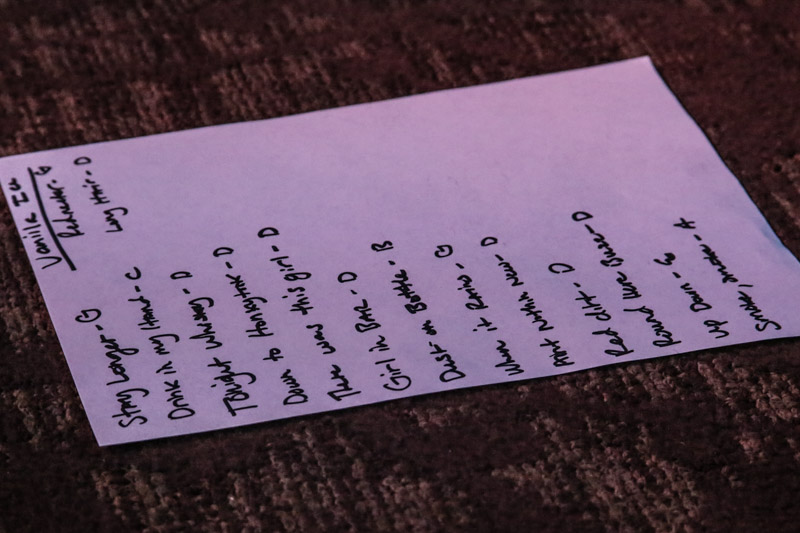 Stay Longer - G
Drink in my Hand - C
Tonight Whiskey - D
Down to Honkytonk - D
There was this girl - D
Girl in Bar - D
Dust on Bottle - B
When it Rains - G
Aint Nothin New - D
Red dirt - D
Round Here Buzz - D
Up Down - G
Smoke, smoke - A
Vanilla Ice
- G
Long Hair - D